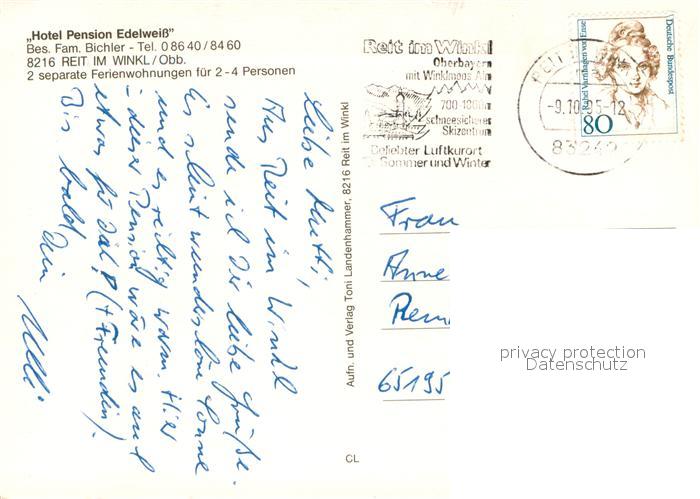 „Hotel Pension Edelweiß"
Bes. Fam. Bichler - Tel. 0 86 40 / 84 60
8216 REIT IM WINKL / Obb.
2 separate Ferienwohnungen für 2 - 4 Personen
Liebe Mutti,
Aus Reit im Winkl
sende ich Dir liebe Grüße.
Es scheint wunderschön Sonne
und es ist richtig warm. Hier
- in dieser Pension wäre es auch
etwas für Dich! (+ Freundin).
Bis bald
Dein
Aufn. und Verlag Toni Landenhammer, 8216 Reit im Winkl
CL
Reit im Winkl
Oberbayern
mit Winklmoos Alm
700-1800m
schneesicheres
Skizentrum
Beliebter Luftkurort
Sommer und Winter
-9.10.95-12
83242
Deutsche Bundespost
Rahel Varnhagen von Ense
80
Frau
Anne
65195
privacy protection
Datenschutz